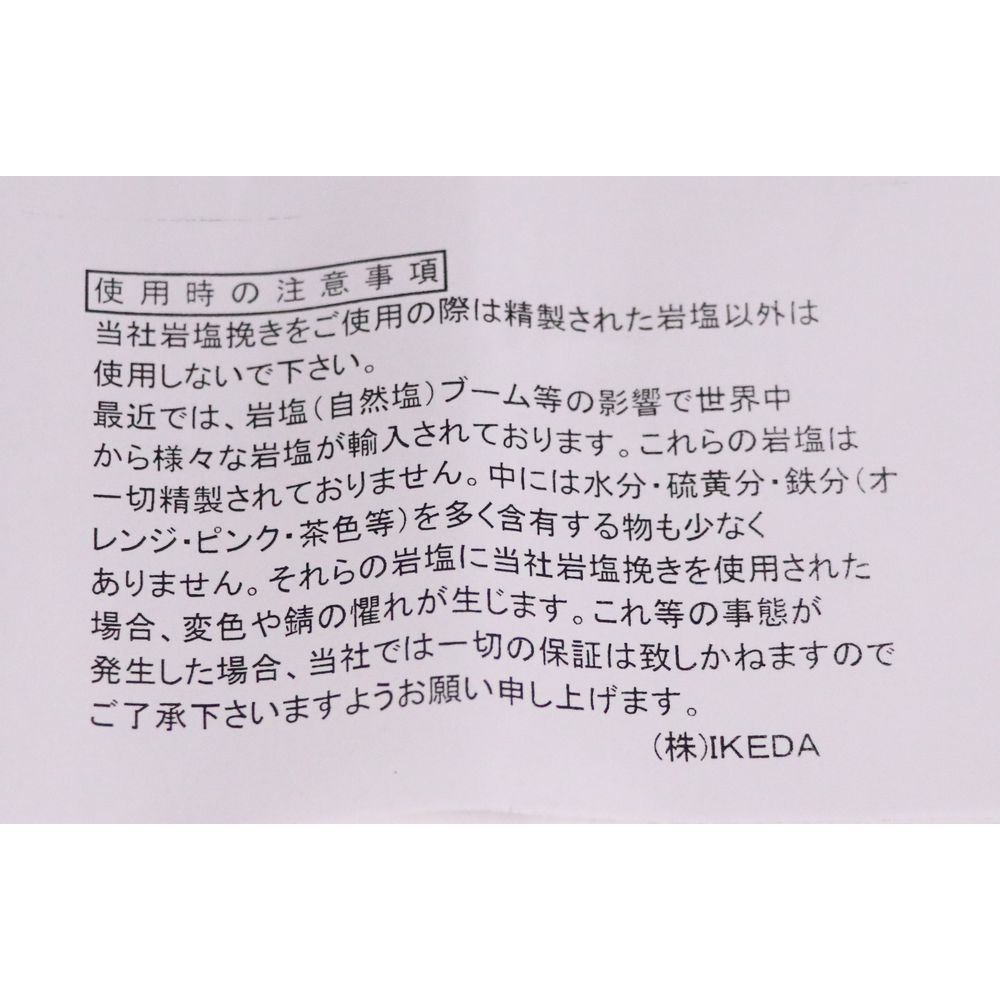 使用時の注意事項
当社岩塩挽きをご使用の際は精製された岩塩以外は
使用しないで下さい。
最近では、岩塩(自然塩)ブーム等の影響で世界中
から様々な岩塩が輸入されております。これらの岩塩は
一切精製されておりません。中には水分・硫黄分・鉄分(オ
レンジ・ピンク・茶色等)を多く含有する物も少なく
ありません。それらの岩塩に当社岩塩挽きを使用された
場合、変色や錆の懼れが生じます。これ等の事態が
発生した場合、当社では一切の保証は致しかねますので
ご了承下さいますようお願い申し上げます。
(株)IKEDA